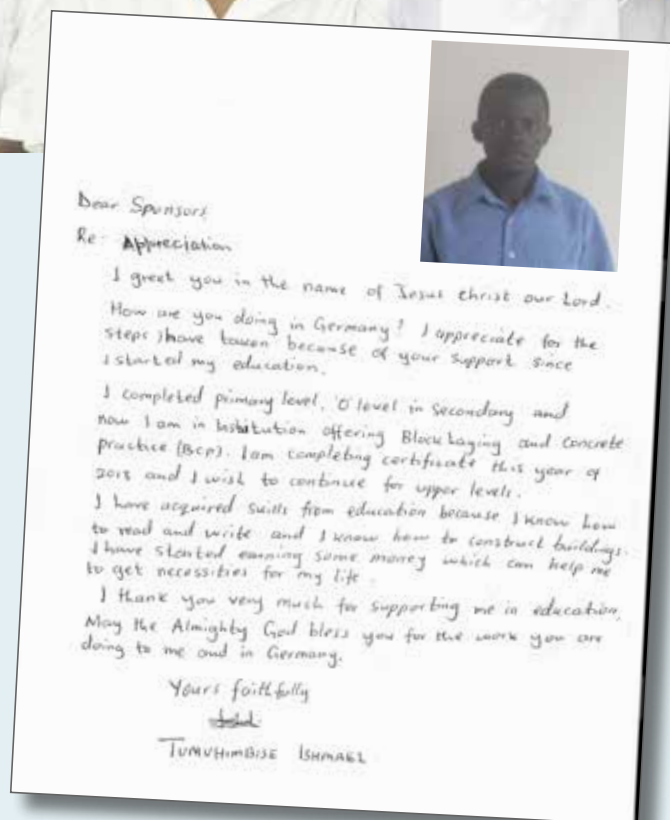 Dear Sponsors
Re: Appreciation
I greet you in the name of Jesus Christ our Lord.
How are you doing in Germany? I appreciate for the
steps I have taken because of your support since
I started my education.
I completed primary level, 'O' level in secondary and
now I am in Institution offering Block Laying and Concrete
practice (BCP). I am completing certificate this year of
and I wish to continue for upper levels.
I have acquired skills from education because I know how
to read and write and I know how to construct buildings.
I have started earning some money which can help me
to get necessities for my life.
I thank you very much for supporting me in education,
May the Almighty God bless you for the work you are
doing to me and in Germany.
Yours faithfully
TUMUHIMBISE ISHMAEL